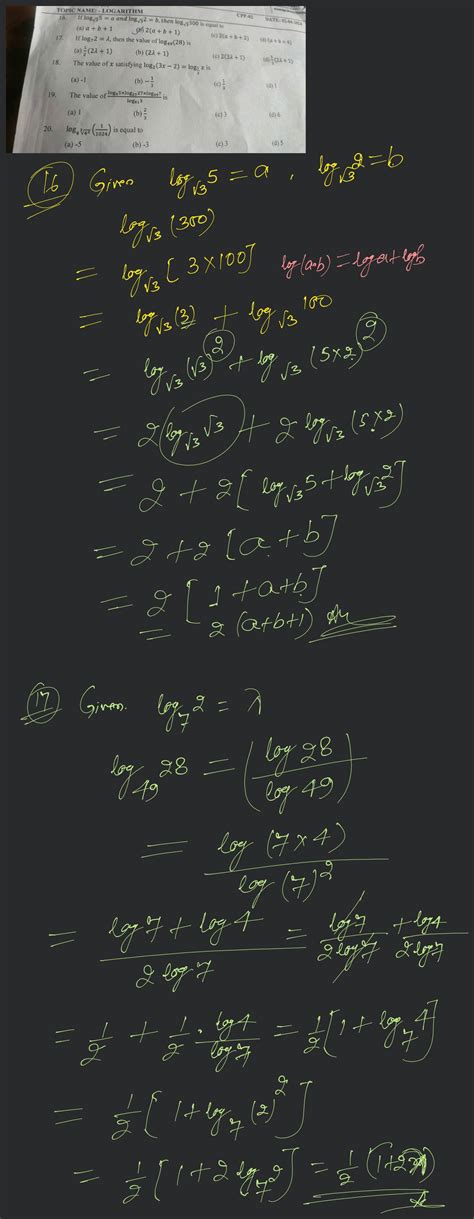 TOPIC NAME - LOGARITHM
16. If log_√3 5 = a and log_√3 2 = b, then log_√3 300 is equal to
(a) a + b + 1 (b) 2(a + b + 1) (c) 2(a + b + 2) (d) (a + b + 4)
17. If log₇2 = λ, then the value of log₄₉(28) is
(a) ½(2λ + 1) (b) (2λ + 1) (c) 2(2λ + 1)
18. The value of x satisfying log₃(3x − 2) = is
(a) -1 (b) -1/3 (c) 1/3 (d) 1
19. The value of is
(a) 1 (b) 2/3 (c) 3 (d) 6
20. (1/1024) is equal to
(a) -5 (b) -3 (c) 3 (d) 5
16 Given log_√3 5 = a , log_√3 2 = b
log_√3 (300)
= log_√3 [3×100] log(a·b) = log a + log b
= log_√3 (3) + log_√3 100
= log_√3 (√3)² + log_√3 (5×2)²
= 2(log_√3 √3) + 2 log_√3 (5×2)
= 2 + 2[log_√3 5 + log_√3 2]
= 2 + 2[a + b]
= 2[1 + a+b]
= 2(a+b+1) Ans
17 Given. log₇ 2 = λ
log₄₉ 28 = (log 28 / log 49)
= log (7×4) / log (7)²
= log 7 + log 4 / 2 log 7 = log 7 / 2 log 7 + log 4 / 2 log 7
= 1/2 + 1/2 · log 4 / log 7 = 1/2 [1 + log₇ 4]
= 1/2 [1 + log₇ (2)²]
= 1/2 [1 + 2 log₇ 2] = 1/2 (1+2λ)